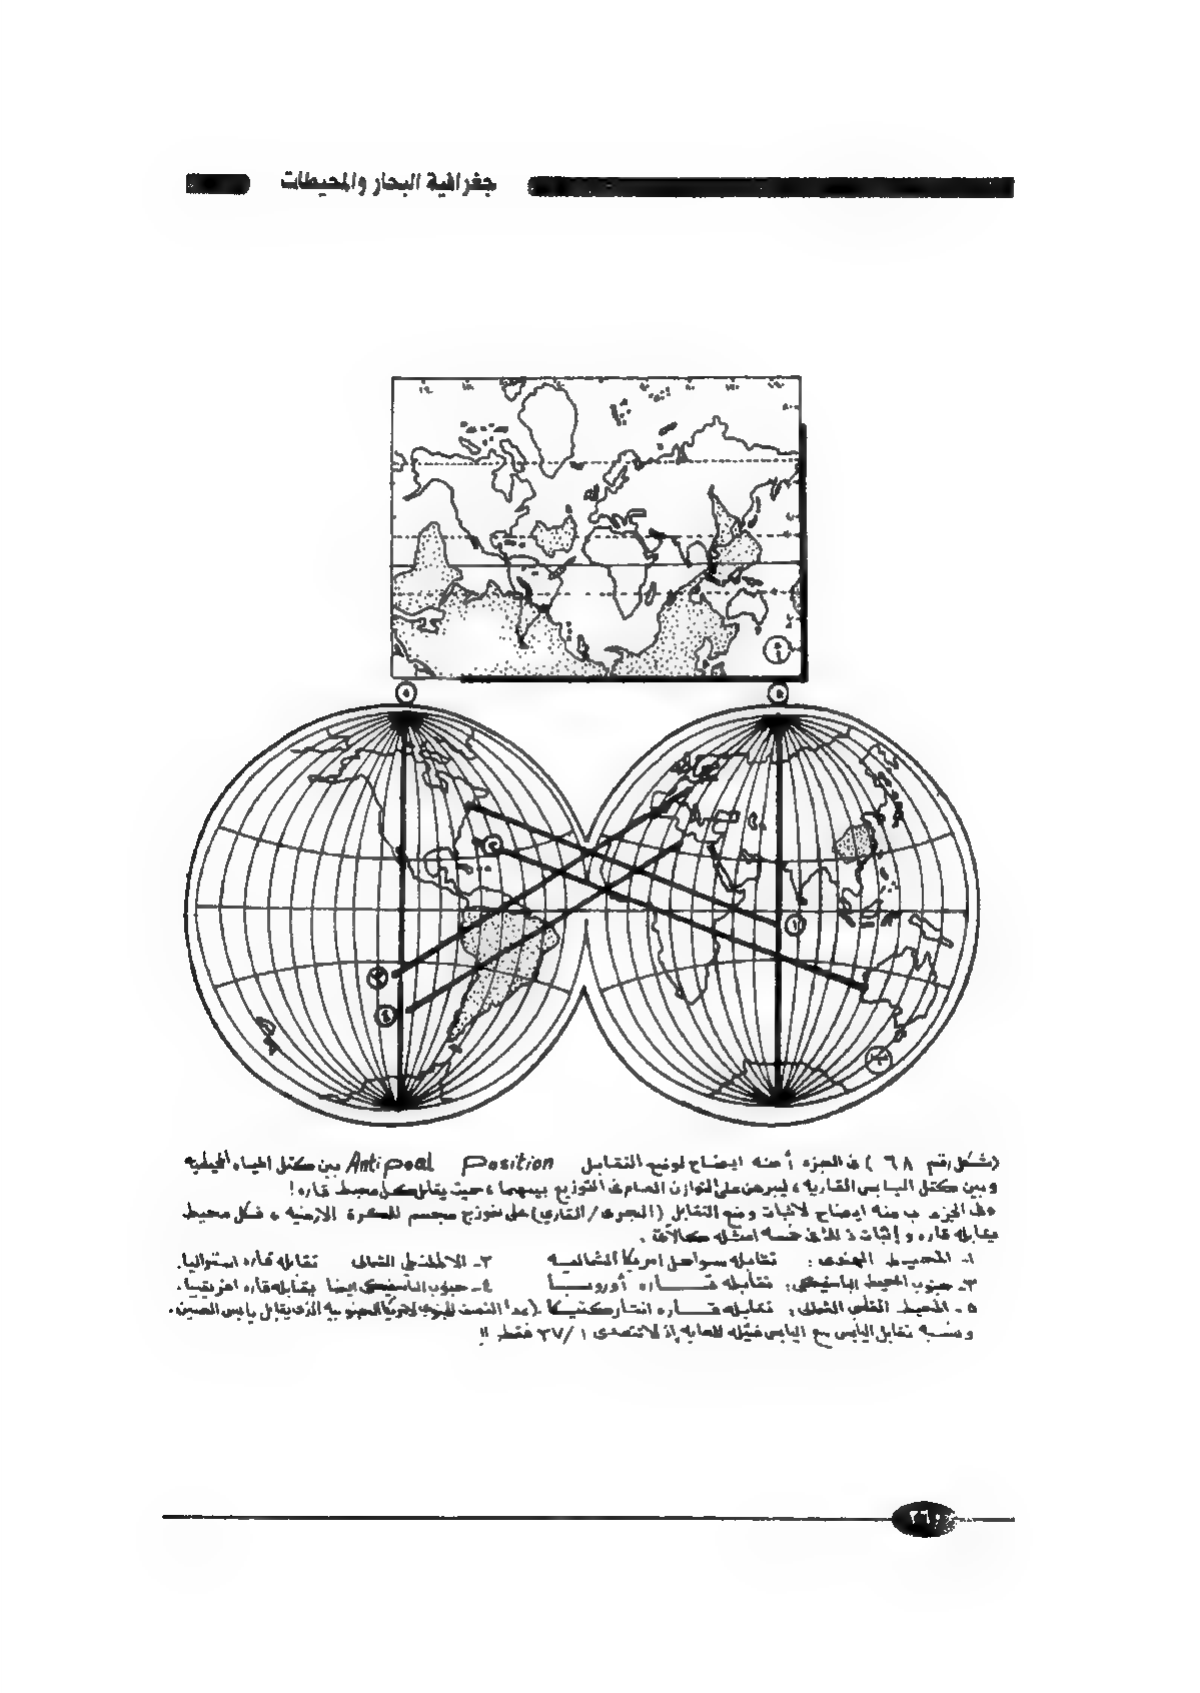 جغرافية البحار والمحيطات
(شكل رقم ٦٨) فى الجزء أ منه ايضاح لوضع التقابل Antipoal Position بين كتل المياه المحيطيه
وبين كتل اليابس القاريه، ليبرهن على التوازن العام فى التوزيع بينهما، حيث يقابل كل محيط قاره!
وفى الجزء ب منه ايضاح لاثبات وضع التقابل (البحرى/القاري) على نموذج مجسم للكرة الارضيه، فكل محيط
يقابله قاره وإثبات ذلك فى خمسه امثله كالآتى:
١- المحيط الهندى: تقابله سواحل امريكا الشماليه
٢- الاطلنطى الشمالى تقابله قاره استراليا.
٣- جنوب المحيط الباسيفيكى: تقابله قاره أوروبا
٤- جنوب الباسيفيكى ايضا يقابله قاره افريقيا.
٥- المحيط القطبى الشمالى: تقابله قاره انتاركتيكا (عدا النصف الجنوبى لامريكا الجنوبيه الذى يقابل يابس الصين.
ونسبه تقابل اليابس مع اليابس ضئيله للغايه إذ لا تتعدى ١/٣٧ فقط !!
٣٦٠